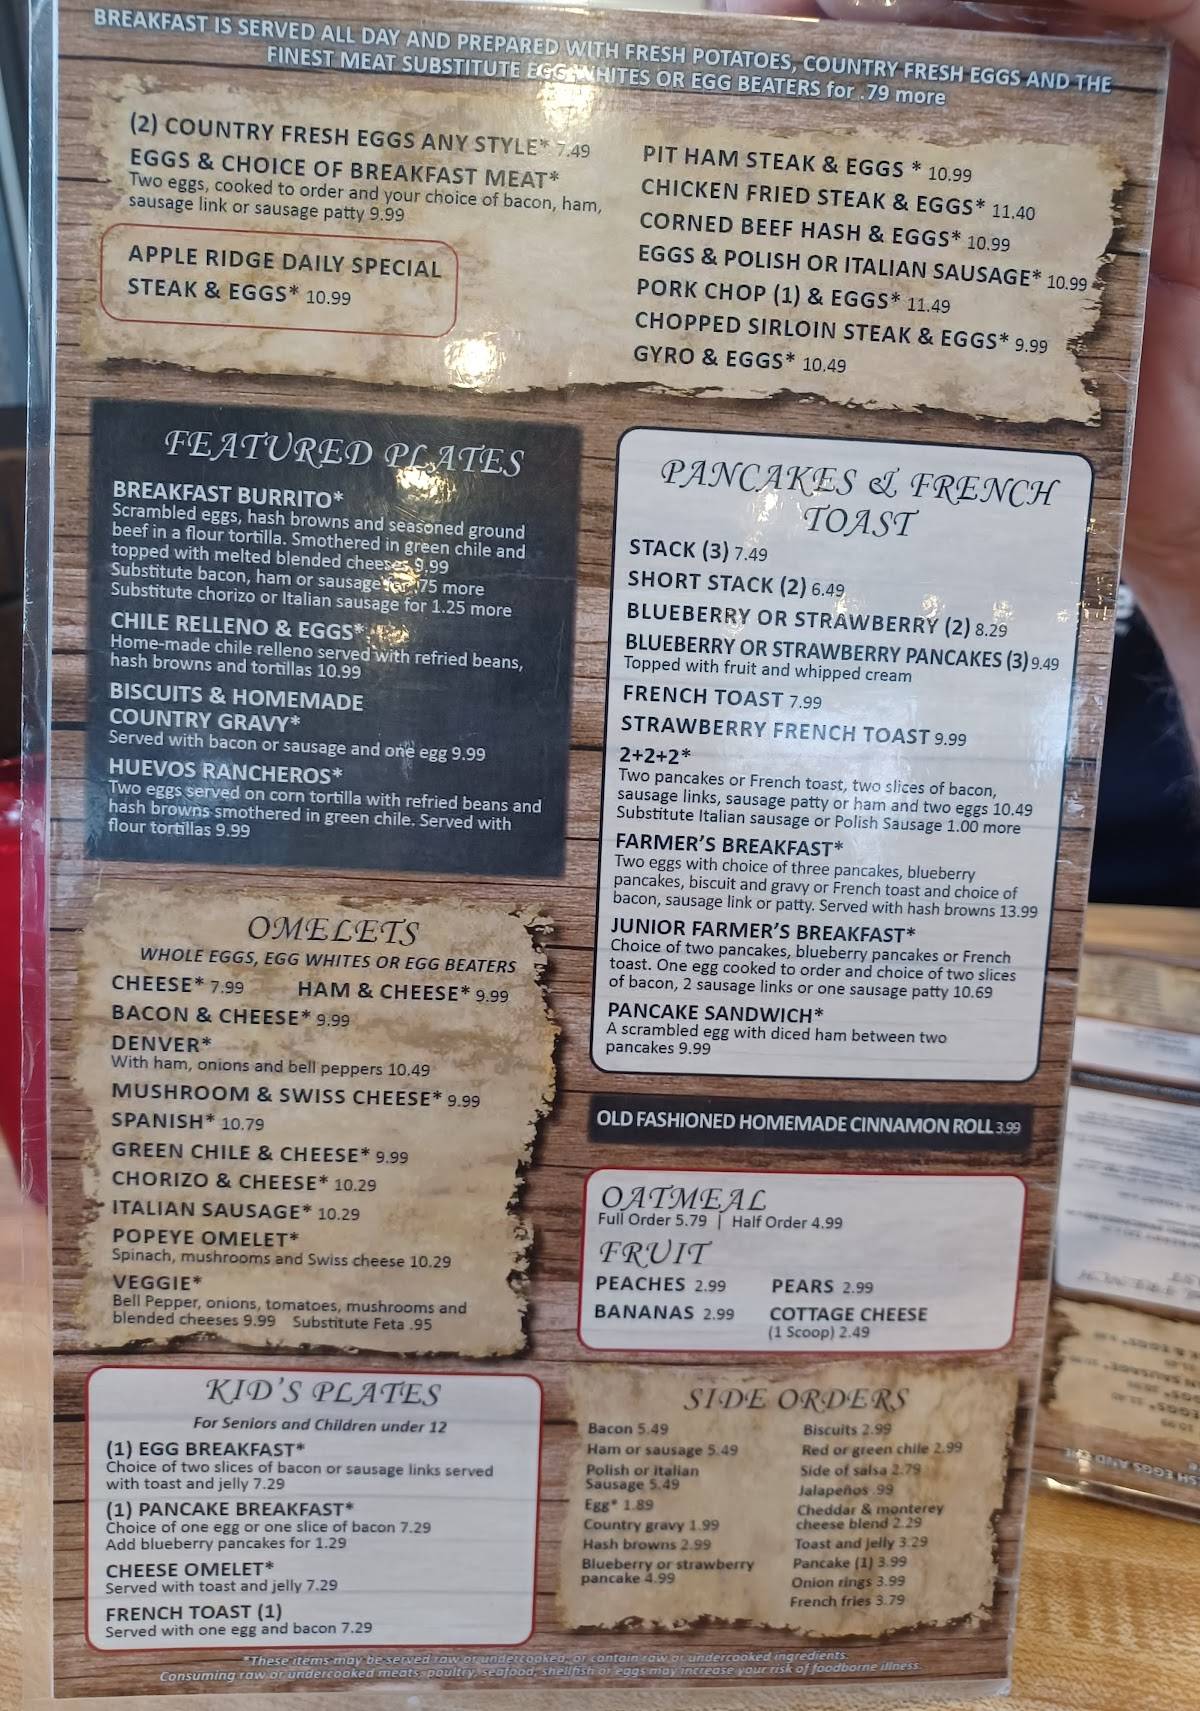 BREAKFAST IS SERVED ALL DAY AND PREPARED WITH FRESH POTATOES, COUNTRY FRESH EGGS AND THE
FINEST MEAT SUBSTITUTE EGG WHITES OR EGG BEATERS for .79 more
(2) COUNTRY FRESH EGGS ANY STYLE* 7.49
EGGS & CHOICE OF BREAKFAST MEAT*
Two eggs, cooked to order and your choice of bacon, ham,
sausage link or sausage patty 9.99
APPLE RIDGE DAILY SPECIAL
STEAK & EGGS* 10.99
PIT HAM STEAK & EGGS * 10.99
CHICKEN FRIED STEAK & EGGS* 11.40
CORNED BEEF HASH & EGGS* 10.99
EGGS & POLISH OR ITALIAN SAUSAGE* 10.99
PORK CHOP (1) & EGGS* 11.49
CHOPPED SIRLOIN STEAK & EGGS* 9.99
GYRO & EGGS* 10.49
FEATURED PLATES
BREAKFAST BURRITO*
Scrambled eggs, hash browns and seasoned ground
beef in a flour tortilla. Smothered in green chile and
topped with melted blended cheeses 9.99
Substitute bacon, ham or sausage for .75 more
Substitute chorizo or Italian sausage for 1.25 more
CHILE RELLENO & EGGS*
Home-made chile relleno served with refried beans,
hash browns and tortillas 10.99
BISCUITS & HOMEMADE
COUNTRY GRAVY*
Served with bacon or sausage and one egg 9.99
HUEVOS RANCHEROS*
Two eggs served on corn tortilla with refried beans and
hash browns smothered in green chile. Served with
flour tortillas 9.99
PANCAKES & FRENCH
TOAST
STACK (3) 7.49
SHORT STACK (2) 6.49
BLUEBERRY OR STRAWBERRY (2) 8.29
BLUEBERRY OR STRAWBERRY PANCAKES (3) 9.49
Topped with fruit and whipped cream
FRENCH TOAST 7.99
STRAWBERRY FRENCH TOAST 9.99
2+2+2*
Two pancakes or French toast, two slices of bacon,
sausage links, sausage patty or ham and two eggs 10.49
Substitute Italian sausage or Polish Sausage 1.00 more
FARMER'S BREAKFAST*
Two eggs with choice of three pancakes, blueberry
pancakes, biscuit and gravy or French toast and choice of
bacon, sausage link or patty. Served with hash browns 13.99
JUNIOR FARMER'S BREAKFAST*
Choice of two pancakes, blueberry pancakes or French
toast. One egg cooked to order and choice of two slices
of bacon, 2 sausage links or one sausage patty 10.69
PANCAKE SANDWICH*
A scrambled egg with diced ham between two
pancakes 9.99
OMELETS
WHOLE EGGS, EGG WHITES OR EGG BEATERS
CHEESE* 7.99 HAM & CHEESE* 9.99
BACON & CHEESE* 9.99
DENVER*
With ham, onions and bell peppers 10.49
MUSHROOM & SWISS CHEESE* 9.99
SPANISH* 10.79
GREEN CHILE & CHEESE* 9.99
CHORIZO & CHEESE* 10.29
ITALIAN SAUSAGE* 10.29
POPEYE OMELET*
Spinach, mushrooms and Swiss cheese 10.29
VEGGIE*
Bell Pepper, onions, tomatoes, mushrooms and
blended cheeses 9.99 Substitute Feta .95
OLD FASHIONED HOMEMADE CINNAMON ROLL 3.99
OATMEAL
Full Order 5.79 | Half Order 4.99
FRUIT
PEACHES 2.99 PEARS 2.99
BANANAS 2.99 COTTAGE CHEESE
(1 Scoop) 2.49
KID'S PLATES
For Seniors and Children under 12
(1) EGG BREAKFAST*
Choice of two slices of bacon or sausage links served
with toast and jelly 7.29
(1) PANCAKE BREAKFAST*
Choice of one egg or one slice of bacon 7.29
Add blueberry pancakes for 1.29
CHEESE OMELET*
Served with toast and jelly 7.29
FRENCH TOAST (1)
Served with one egg and bacon 7.29
SIDE ORDERS
Bacon 5.49
Ham or sausage 5.49
Polish or Italian
Sausage 5.49
Egg* 1.89
Country gravy 1.99
Hash browns 2.99
Blueberry or strawberry
pancake 4.99
Biscuits 2.99
Red or green chile 2.99
Side of salsa 2.79
Jalapeños .99
Cheddar & monterey
cheese blend 2.29
Toast and jelly 3.29
Pancake (1) 3.99
Onion rings 3.99
French fries 3.79
*These items may be served raw or undercooked, or contain raw or undercooked ingredients.
Consuming raw or undercooked meats, poultry, seafood, shellfish or eggs may increase your risk of foodborne illness.